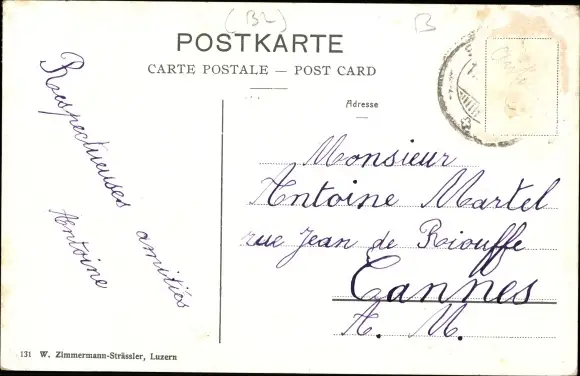 (B2)
B
POSTKARTE
CARTE POSTALE — POST CARD
Adresse
Respectueuses amitiés
Antoine
Monsieur
Antoine Martel
rue Jean de Riouffe
Cannes
A. M.
131 W. Zimmermann-Strässler, Luzern